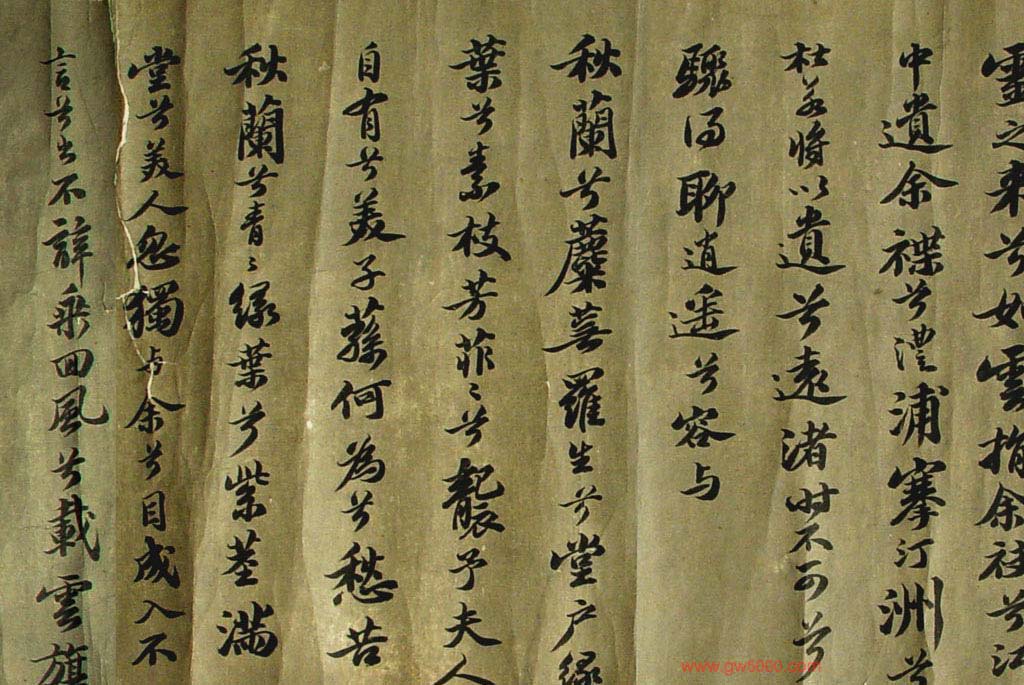 靈之來兮如雲捐余袂兮江
中遺余褋兮澧浦搴汀洲兮
杜若將以遺兮遠渚時不可兮
驟得聊逍遥兮容与
秋蘭兮蘪蕪羅生兮堂户緑
葉兮素枝芳菲〻兮襲予夫人
自有兮美子蓀何為兮愁苦
秋蘭兮青〻緑葉兮紫莖滿
堂兮美人忽獨与余兮目成入不
言兮出不辭乘回風兮載雲旗
www.gw5000.com